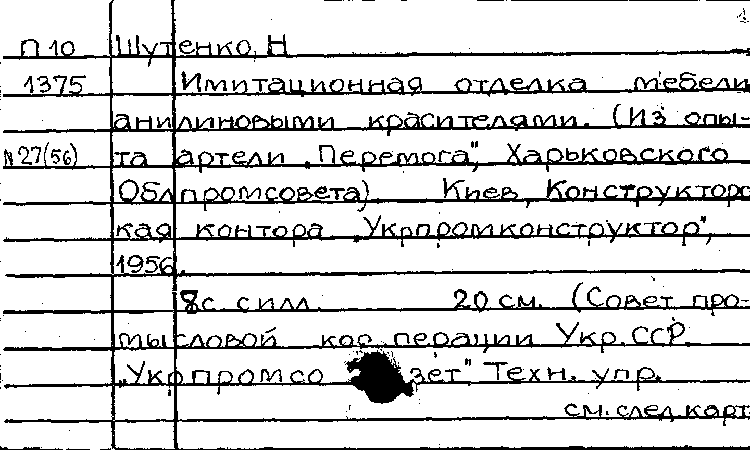 П 10 Шутенко, Н
1375 Имитационная отделка мебели
анилиновыми красителями. (Из опы-
N27(56) та артели „Перемога", Харьковского
Облпромсовета) Киев, Конструкторс
кая контора „Укрпромконструктор",
1956.
8с. с илл. 20 см. (Совет про-
мысловой кооперации Укр. ССР.
„Укрпромсо зет" Техн. упр.
см. след карт